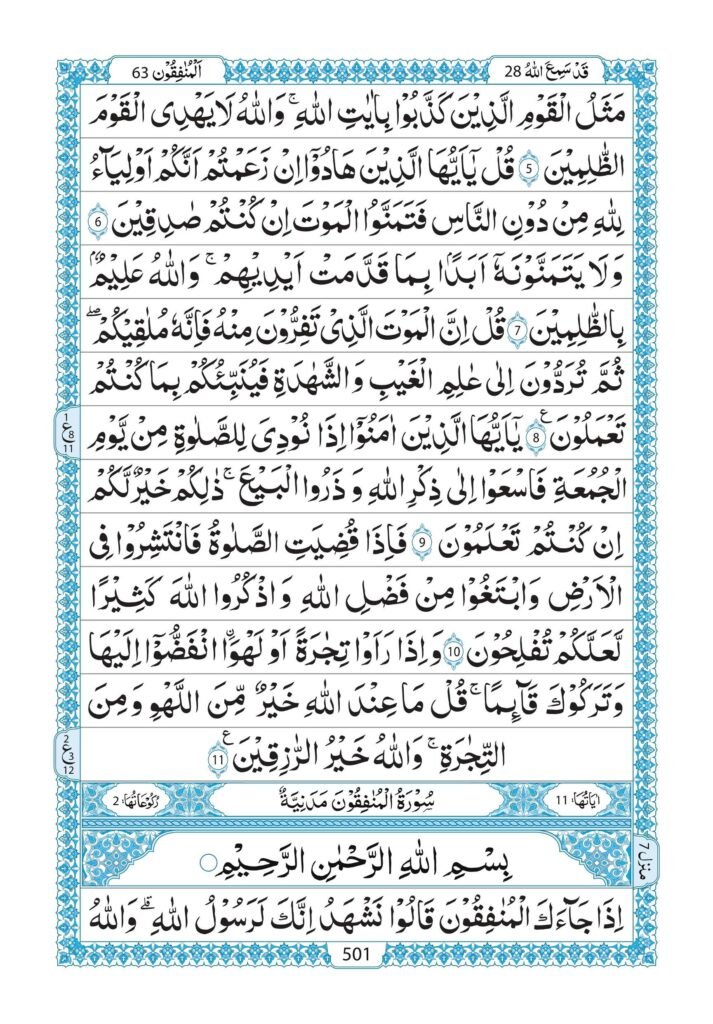 قَدْ سَمِعَ اللّٰهُ 28
اَلْمُنٰفِقُوْن 63
مَثَلُ الْقَوْمِ الَّذِيْنَ كَذَّبُوْا بِاٰيٰتِ اللّٰهِ ؕ وَاللّٰهُ لَا يَهْدِى الْقَوْمَ
الظّٰلِمِيْنَ 5 قُلْ يٰۤاَيُّهَا الَّذِيْنَ هَادُوْۤا اِنْ زَعَمْتُمْ اَنَّكُمْ اَوْلِيَآءُ
لِلّٰهِ مِنْ دُوْنِ النَّاسِ فَتَمَنَّوُا الْمَوْتَ اِنْ كُنْتُمْ صٰدِقِيْنَ 6
وَلَا يَتَمَنَّوْنَهٗۤ اَبَدًۢا بِمَا قَدَّمَتْ اَيْدِيْهِمْ ؕ وَاللّٰهُ عَلِيْمٌۢ
بِالظّٰلِمِيْنَ 7 قُلْ اِنَّ الْمَوْتَ الَّذِىْ تَفِرُّوْنَ مِنْهُ فَاِنَّهٗ مُلٰقِيْكُمْ ۖ
ثُمَّ تُرَدُّوْنَ اِلٰى عٰلِمِ الْغَيْبِ وَالشَّهٰدَةِ فَيُنَبِّئُكُمْ بِمَا كُنْتُمْ
تَعْمَلُوْنَ 8 ع يٰۤاَيُّهَا الَّذِيْنَ اٰمَنُوْۤا اِذَا نُوْدِىَ لِلصَّلٰوةِ مِنْ يَّوْمِ
1 ع 8 11
الْجُمُعَةِ فَاسْعَوْا اِلٰى ذِكْرِ اللّٰهِ وَذَرُوا الْبَيْعَ ؕ ذٰلِكُمْ خَيْرٌ لَّكُمْ
اِنْ كُنْتُمْ تَعْلَمُوْنَ 9 فَاِذَا قُضِيَتِ الصَّلٰوةُ فَانْتَشِرُوْا فِى
الْاَرْضِ وَابْتَغُوْا مِنْ فَضْلِ اللّٰهِ وَاذْكُرُوا اللّٰهَ كَثِيْرًا
لَّعَلَّكُمْ تُفْلِحُوْنَ 10 وَاِذَا رَاَوْا تِجَارَةً اَوْ لَهْوًا۟ انْفَضُّوْۤا اِلَيْهَا
وَتَرَكُوْكَ قَآئِمًا ؕ قُلْ مَا عِنْدَ اللّٰهِ خَيْرٌ مِّنَ اللَّهْوِ وَمِنَ
التِّجَارَةِ ؕ وَاللّٰهُ خَيْرُ الرّٰزِقِيْنَ 11 ع
2 ع 3 12
اٰيَاتُهَا: 11
سُوْرَةُ الْمُنٰفِقُوْنَ مَدَنِيَّةٌ
رُكُوْعَاتُهَا: 2
منزل 7
بِسْمِ اللّٰهِ الرَّحْمٰنِ الرَّحِيْمِ
اِذَا جَآءَكَ الْمُنٰفِقُوْنَ قَالُوْا نَشْهَدُ اِنَّكَ لَرَسُوْلُ اللّٰهِ ۘ وَاللّٰهُ
501